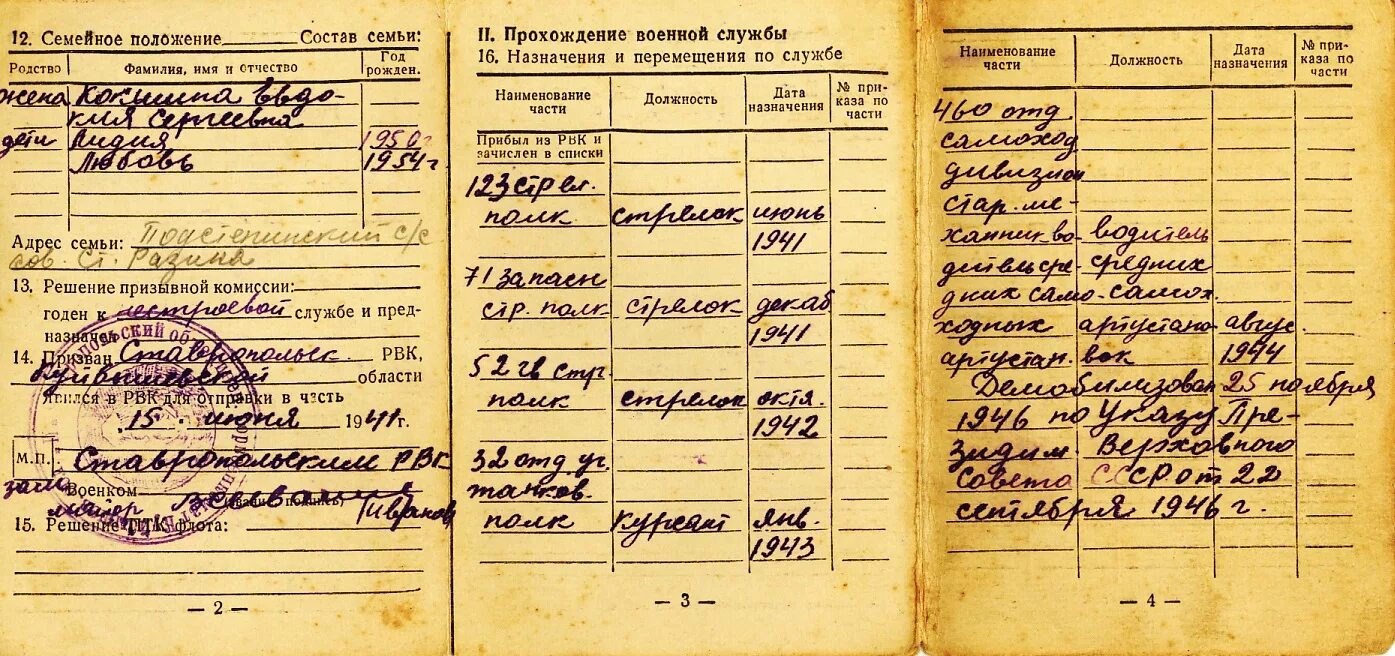 12. Семейное положение Состав семьи:
Родство Фамилия, имя и отчество Год рожден.
жена Кокшина Евдо-
кия Сергеевна
дети Лидия 1950г
Любовь 1954г
Адрес семьи: Подстепинский с/с
сов. Ст. Разина
13. Решение призывной комиссии:
годен к нестроевой службе и пред-
назначен
14. Призван Ставропольск. РВК,
Куйбышевской области
явился в РВК для отправки в часть
"15" июня 1941г.
М.П. Ставропольским РВК
зам Военком
майор
15. Решение ПТК флота:
— 2 —
II. Прохождение военной службы
16. Назначения и перемещения по службе
Наименование части Должность Дата назначения № при-каза по части
Прибыл из РВК и
зачислен в списки
123 стрел.
полк стрелок июнь
1941
71 запасн
стр. полк стрелок декаб
1941
52 гв стр
полк стрелок октя.
1942
32 отд. уч.
танков.
полк курсант янв.
1943
— 3 —
Наименование части Должность Дата назначения № при-каза по части
460 отд
самоход
дивизион
стар. ме-
ханик-во- водитель
дитель сре- средних
дних само- самох.
ходных артустано- авгус.
артустан. вок 1944
Демобилизован 25 ноября
1946 по Указу Пре-
зидим Верховного
Совета СССР от 22
сентября 1946 г.
— 4 —